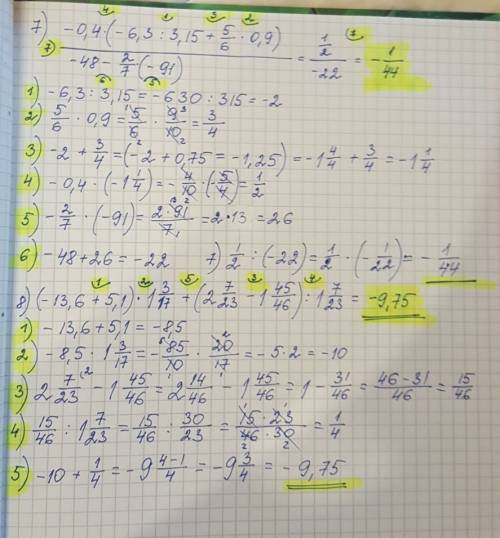 4 1 3 2
7) -0,4·(-6,3 : 3,15 + 5/6 · 0,9)
7) ――――― = (1/2)/(-22) (7) = -1/44
-48 - 2/7 (-91)
6 5
1) -6,3 : 3,15 = -630 : 315 = -2
2) 5/6 · 0,9 = 5/6 · 9/10 = 3/4
3) -2 + 3/4 = (-2 + 0,75 = -1,25) = -1 4/4 + 3/4 = -1 1/4
4) -0,4 · (-1 1/4) = -4/10 · (-5/4) = 1/2
5) -2/7 · (-91) = 2·91/7 = 2·13 = 26
6) -48+26 = -22 7) 1/2 : (-22) = 1/2 · (-1/22) = -1/44
1 2 5 3 4
8) (-13,6 + 5,1) · 1 3/17 + (2 7/23 - 1 45/46) : 1 7/23 = -9,75
1) -13,6 + 5,1 = -8,5
2) -8,5 · 1 3/17 = -85/10 · 20/17 = -5·2 = -10
3) 2 7/23 - 1 45/46 = 2 14/46 - 1 45/46 = 1 - 31/46 = 46-31/46 = 15/46
4) 15/46 : 1 7/23 = 15/46 · 30/23 = 15·23/46·30 = 1/4
5) -10 + 1/4 = -9 4-1/4 = -9 3/4 = -9,75